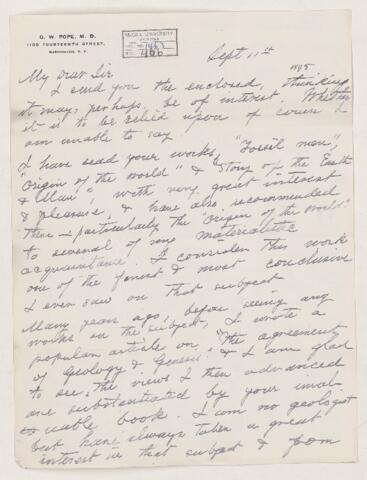 G. W. POPE, M. D.
1105 FOURTEENTH STREET,
WASHINGTON, D. C.
McGILL UNIVERSITY
ARCHIVES
466
Sept 11th
1895
My Dear Sir
I send you the enclosed, thinking
it may, perhaps, be of interest. Whether
it is to be relied upon of course I
am unable to say.
I have read your works, "Fossil men,"
"Origin of the World" & "Story of the Earth
& Man", with very great interest
& pleasure, & have also recommended
them & particularly the "Origin of the World"
to several of my materialistic
acquaintance. I consider this work
one of the finest & most conclusive
I ever saw on that subject
Many years ago, before seeing any
works on the subject, I wrote a
popular article on, "The agreement
of Geology & Genesis" & I am glad
to see, the views I then advanced
are substantiated by your inval-
uable book. I am no geologist
but have always taken a great
interest in that subject & from